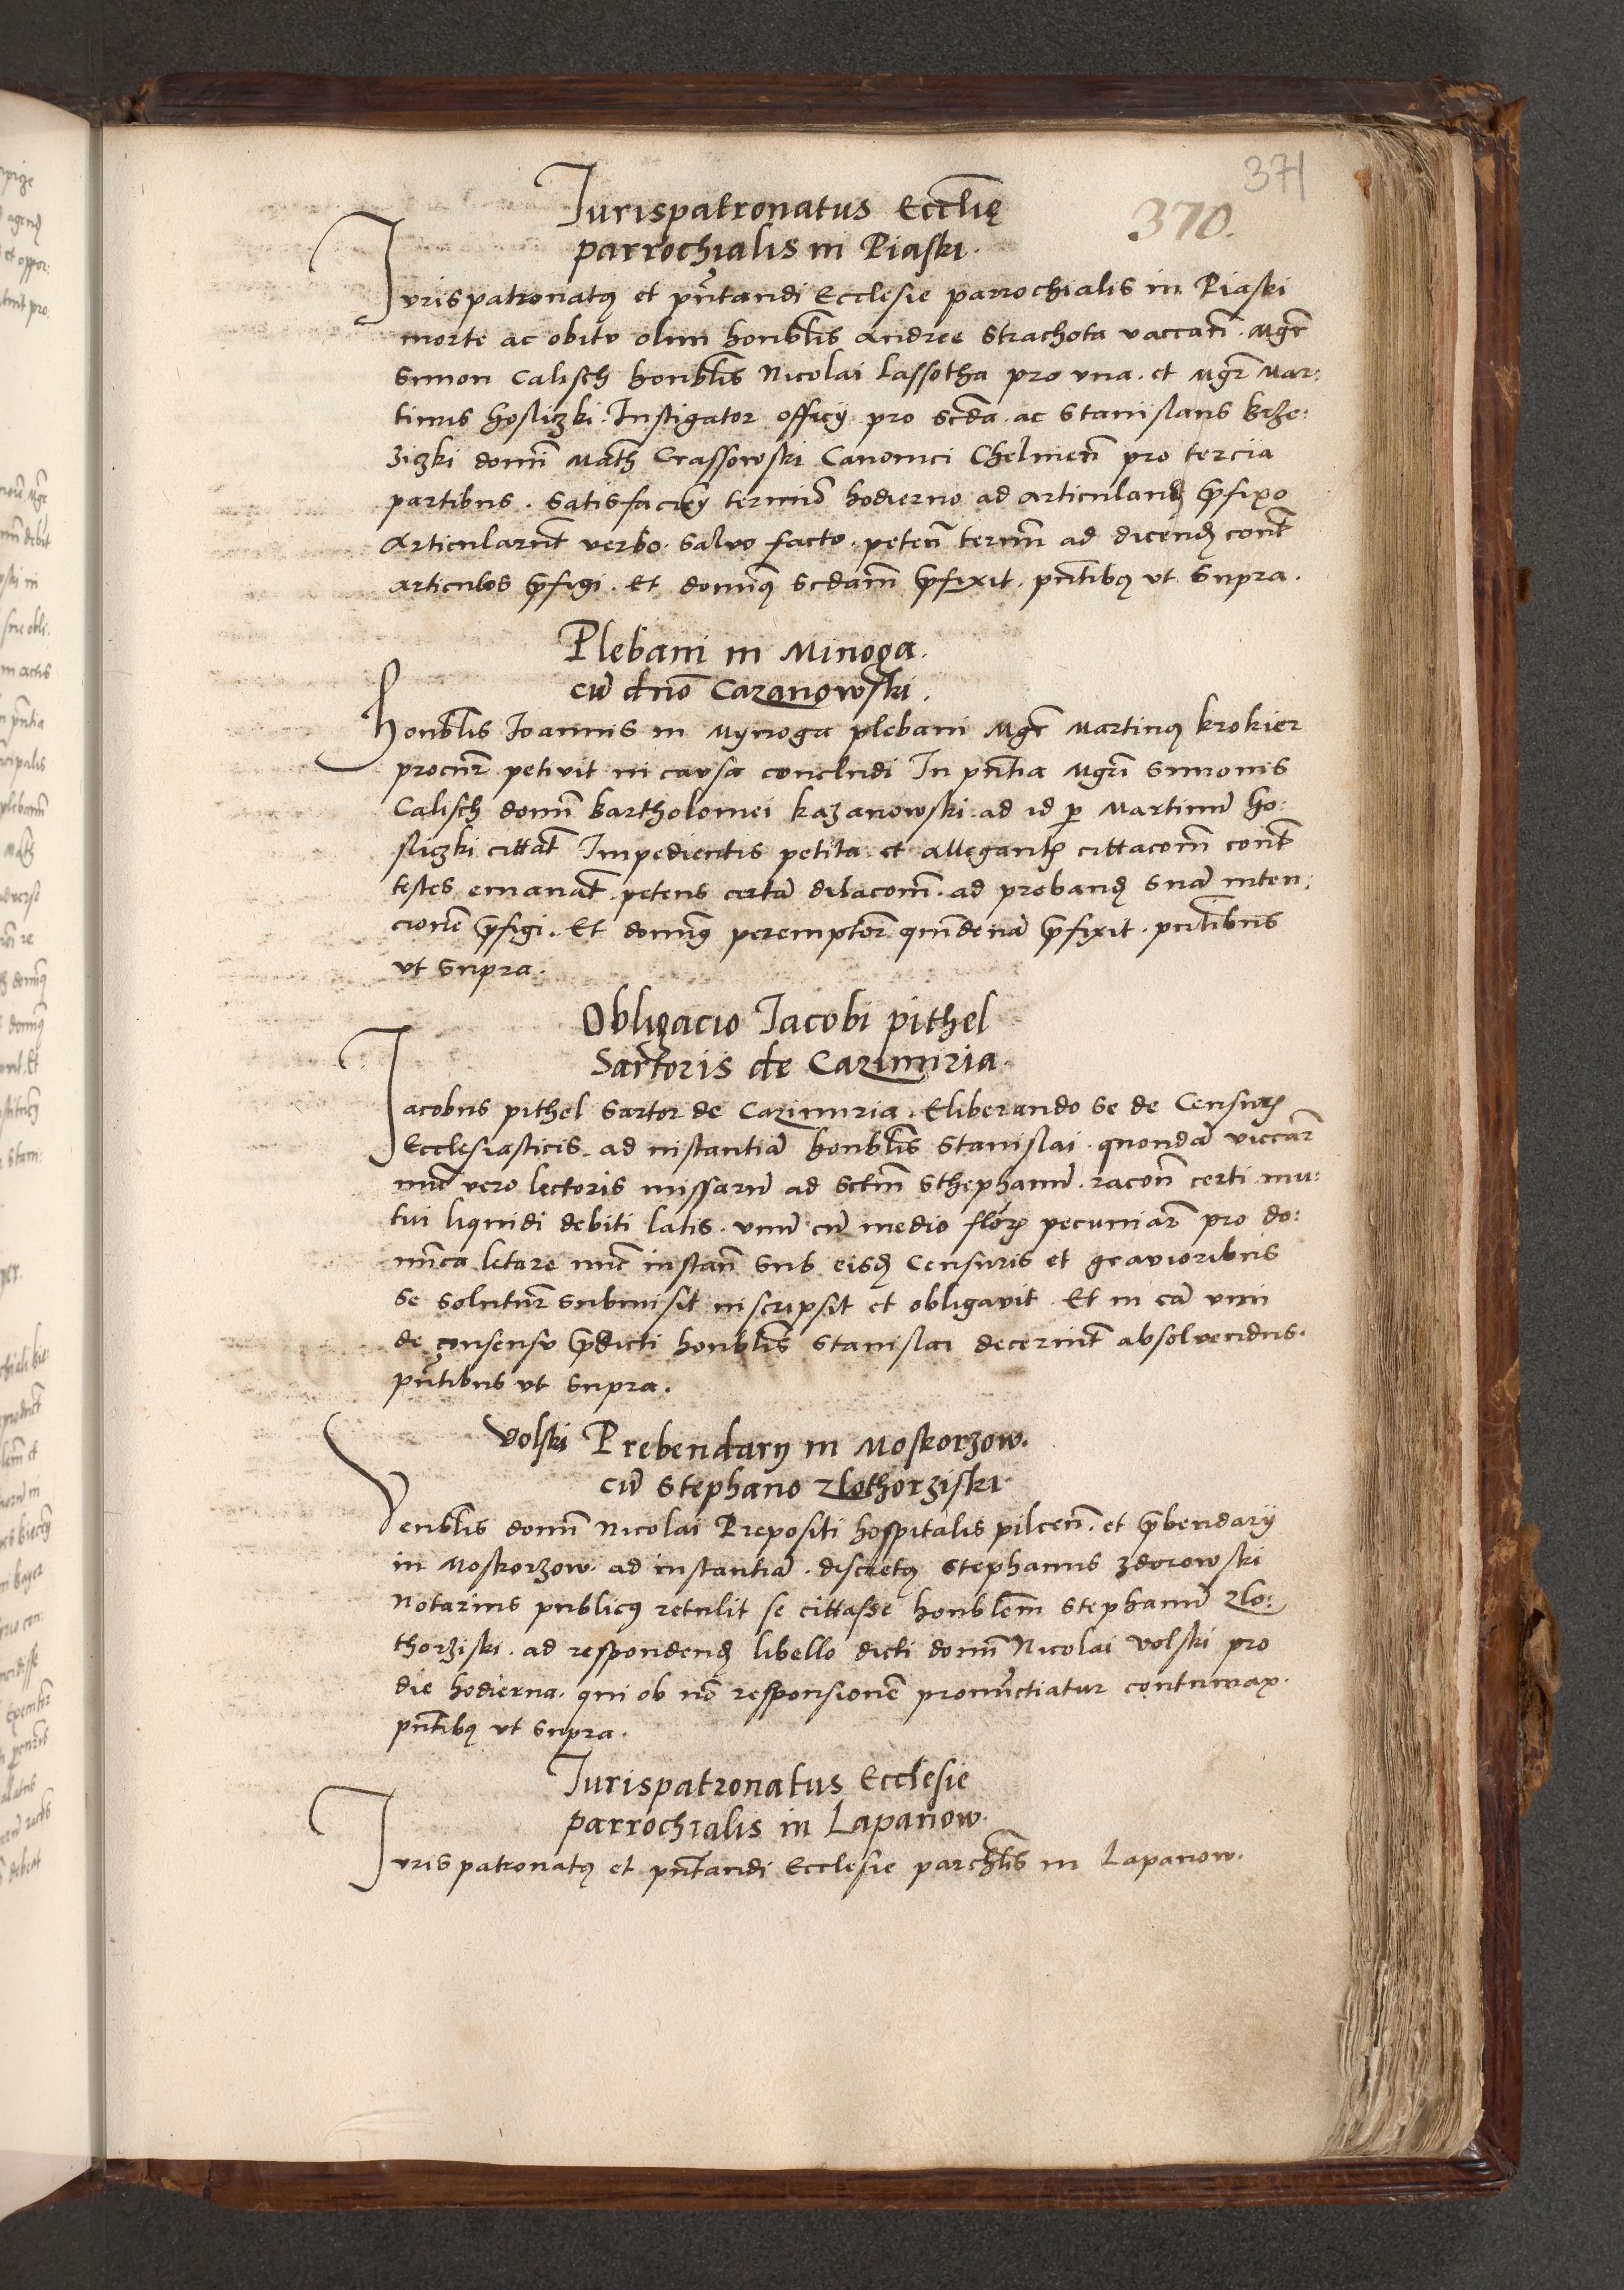 371
370.
Jurispatronatus Eccl̅ię
parrochialis in Piaski.
Jvrispatronatꝰ et pn̅tandi Ecclesie parrochialis in Piaski
morte ac obitv olim honbl̅is Andree Strachota vaccan̅. Mgr̅
Simon Calisch honbl̅is Nicolai Lassotha pro vna. et Mgr̅ Mar:
tinus Hoslizki. Instigator officij pro scd̅a. ac Stanislaus Krze:
zizki domi̅ Math̅ Crassowski Canonici Chelmen̅ pro tercia
partibus. Satisfacien̅ termino̅ hodierno ad articuland̅ p̅fixo
Articularu̅t verbo. Salvo facto. peten̅ termi̅ ad dicend̅ cont̅
articulos p̅figi. Et dominꝰ scd̅am p̅fixit. pn̅tibꝰ vt Supra.
Plebani in Minoga.
cu̅ dno̅ Cazanowski.
Honbl̅is Joannis in Mynoga plebani Mgr̅ Martinꝰ Krokier
procur̅ petivit in cavsa concludi In pn̅tia Mgri̅ Simonis
Calisch domi̅ Bartholomei Kazanowski. ad id p̱ Martinu̅ Ho:
slizki cittat̅ Impedientis petita. et allegant̅ cittacom̅ cont̅
testes emanat̅. petens certa̅ dilacom̅. ad proband̅ sua̅ inten:
cione̅ p̅figi. Et dominꝰ peremptor̅ quindena̅ p̅fixit. pn̅tibus
vt Supra.
Obligacio Jacobi pithel
Sartoris de Cazimiria.
Jacobus pithel Sartor de Cazimiria. Eliberando se de Censur̅
Ecclesiasticis. ad instantia̅ honbl̅is Stanislai. quonda̅ viccar̅
nu̅c vero lectoris missaru̅ ad Sct̅m Sthephanu̅. racon̅ certi mu:
tui liquidi debiti latis. vnu̅ cu̅ medio flor̅ pecuniar̅ pro do:
mi̅ca letare nu̅c instan̅ sub eisd̅ Censuris et gravioribus
se solutur̅ submisit inscripsit et obligavit. Et in ea̅ vim
de consensv p̅dicti honbl̅is Stanislai decerni̅t absolvendus.
pn̅tibus vt Supra.
Volski Prebendarij in Moskorzow.
cu̅ Stephano Zlothorziski.
Venbl̅is domi̅ Nicolai Prepositi hospitalis pilcen̅. et p̅bendarij
in Moskorzow. ad instantia̅. discretꝰ Stephanus Zdorowski
Notarius publicꝰ retulit se cittasse honbl̅em Stephanu̅ Zlo:
thorziski. ad respondend̅ libello dicti domi̅ Nicolai Volski pro
die hodierna. qui ob no̅ responsione̅ pronu̅ctiatur contumax.
pn̅tibꝰ vt Supra.
Jurispatronatus Ecclesie
parrochialis in Lapanow.
Jvrispatronatꝰ et pn̅tandi Ecclesie parchl̅is in Lapanow.